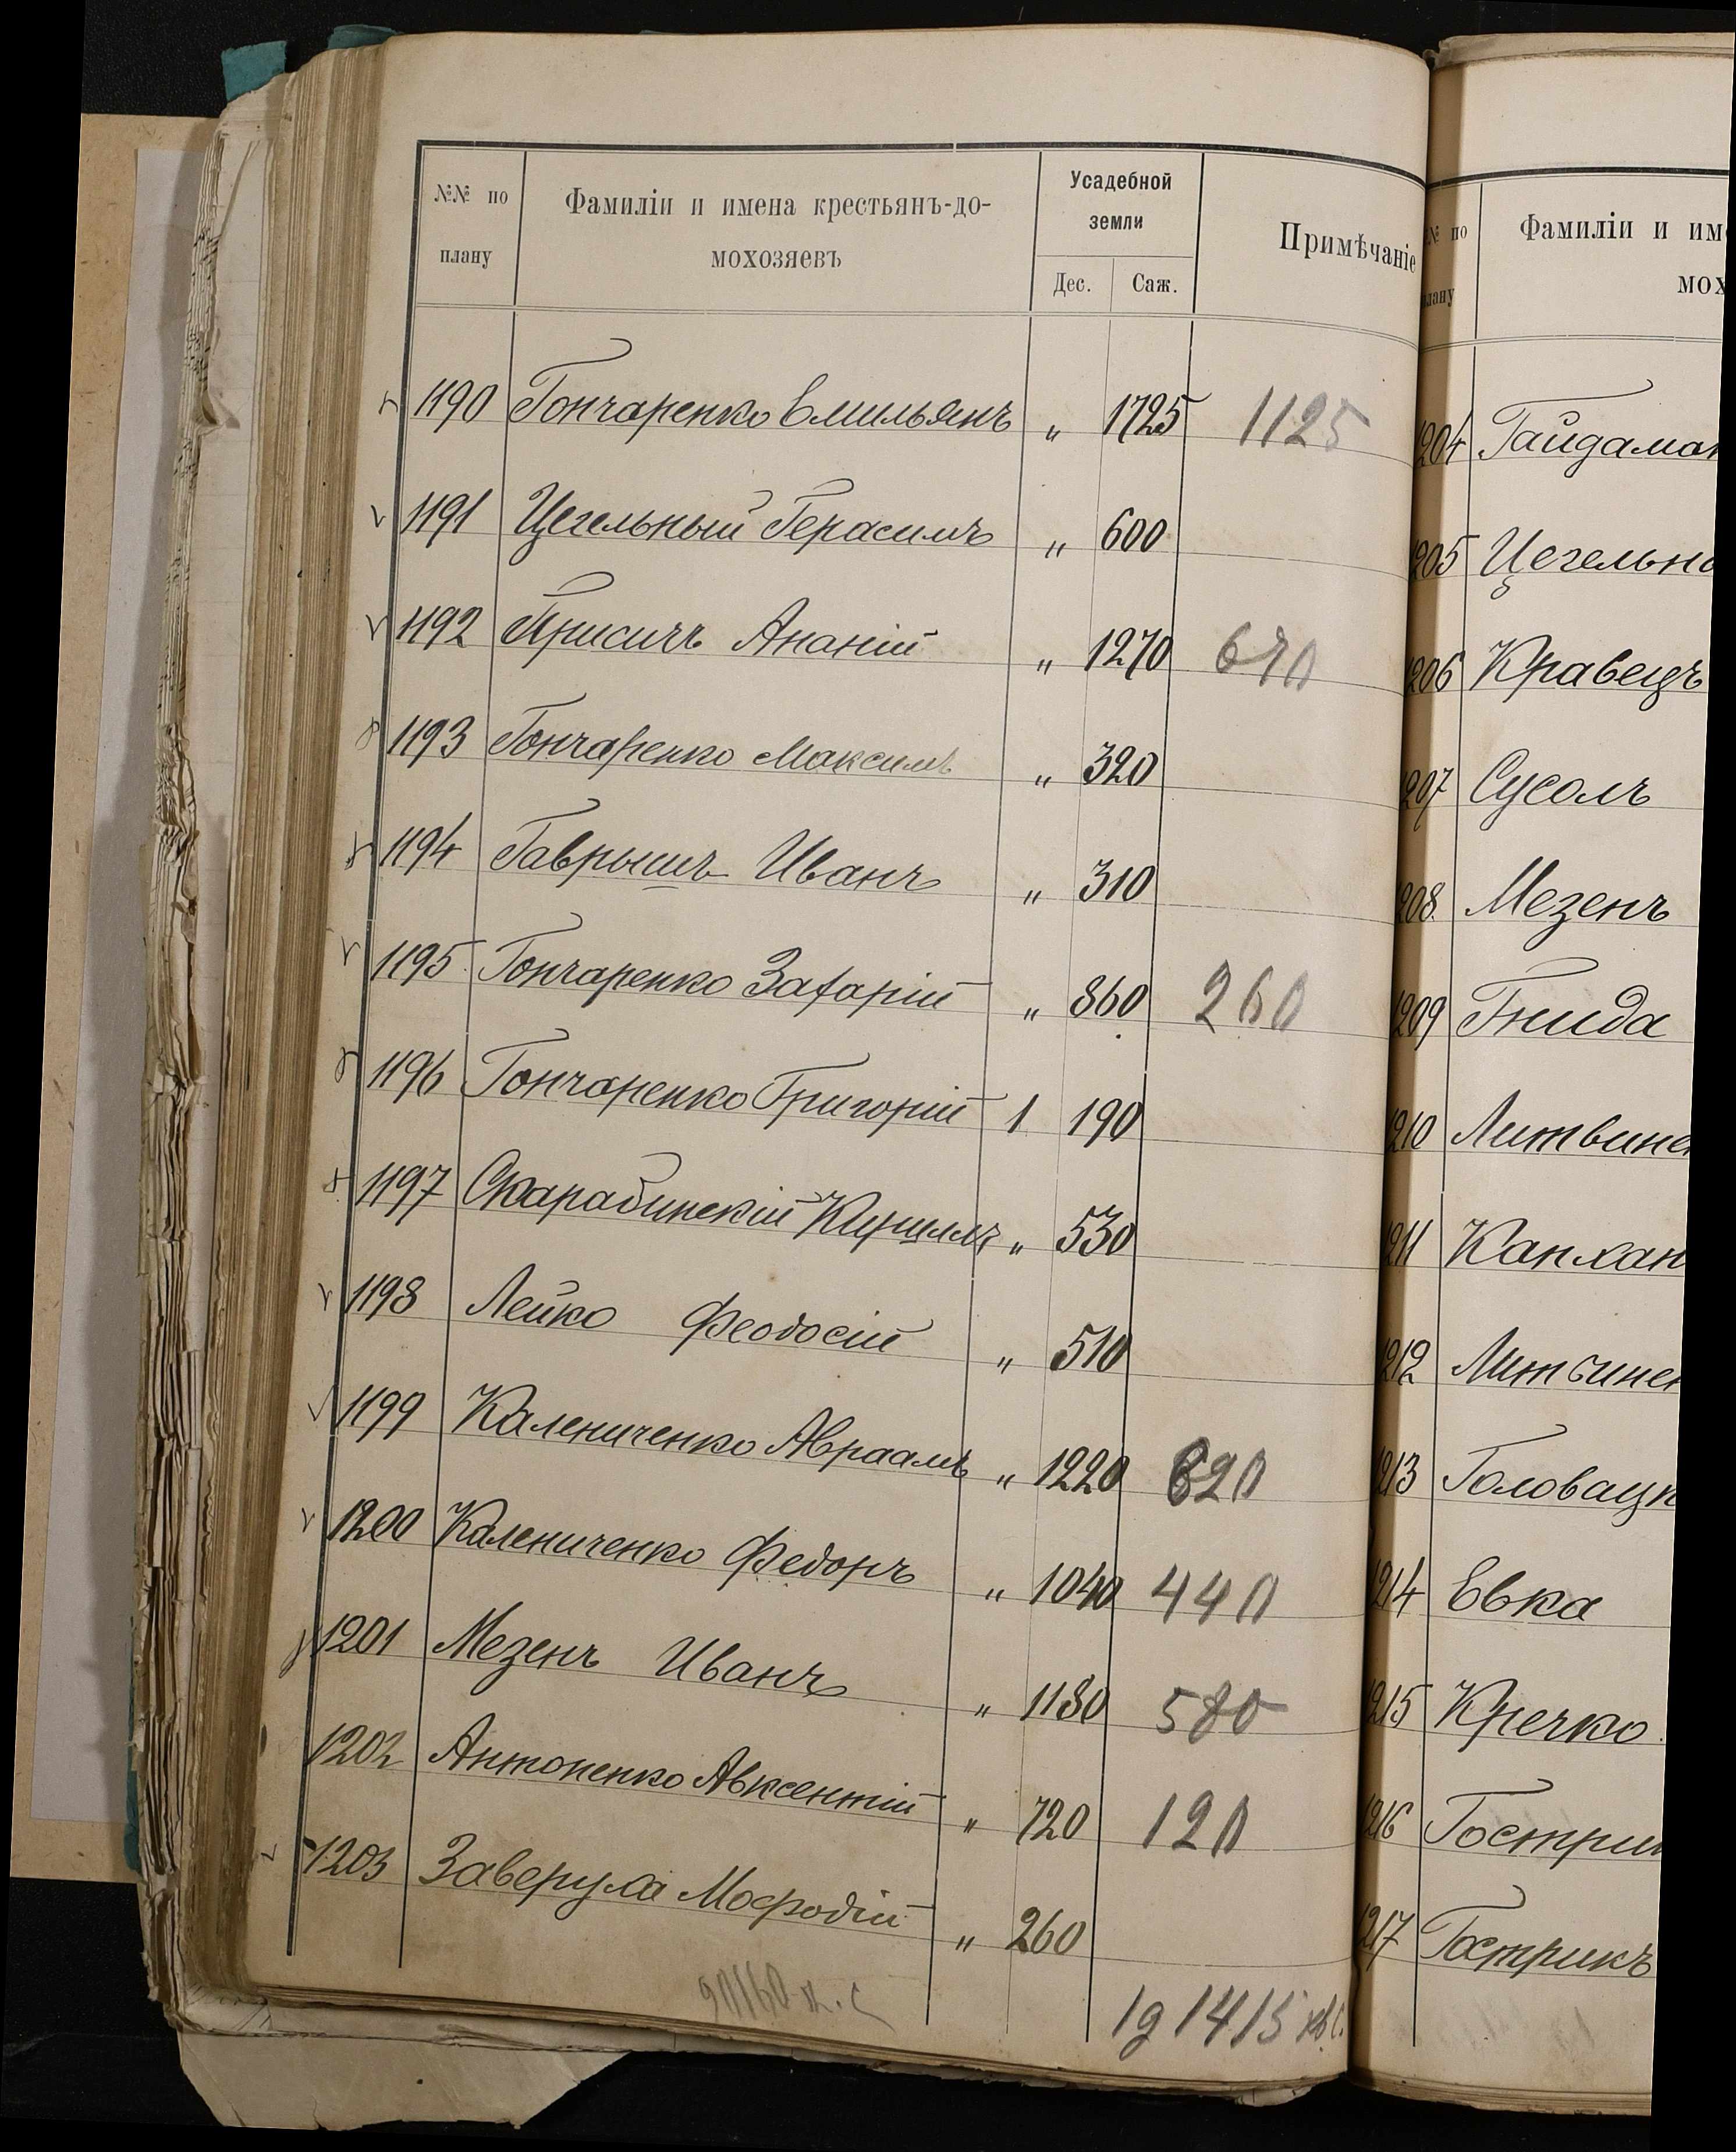 №№ по плану
Фамиліи и имена крестьянъ-до-
мохозяевъ
Усадебной
земли
Дес. Саж.
Примѣчаніе
1190 Гончаренко Емильянъ „ 1725 1125
1191 Цегельный Герасимъ „ 600
1192 Присичъ Ананій „ 1270 670
1193 Гончаренко Максимъ „ 320
1194 Гаврышъ Иванъ „ 310
1195 Гончаренко Захарій „ 860 260
1196 Гончаренко Григорій 1 190
1197 Скарабинскій Кирилъ „ 530
1198 Лейко Феодосій „ 510
1199 Калениченко Авраамъ „ 1220 620
1200 Калениченко Федоръ „ 1040 440
1201 Мезенъ Иванъ „ 1180 580
1202 Антоненко Авксентій „ 720 120
1203 Заверуха Мефодій „ 260
1д 1415 кв с.
№ по
лану
Фамиліи и им
мох
204 Гайдамак
205 Цегельн
206 Кравецъ
207 Сусолъ
208 Мезенъ
209 Гнида
210 Литвине
211 Каплан
212 Литвине
213 Головацк
214 Евка
215 Кречко
216 Гостри
217 Гострикъ